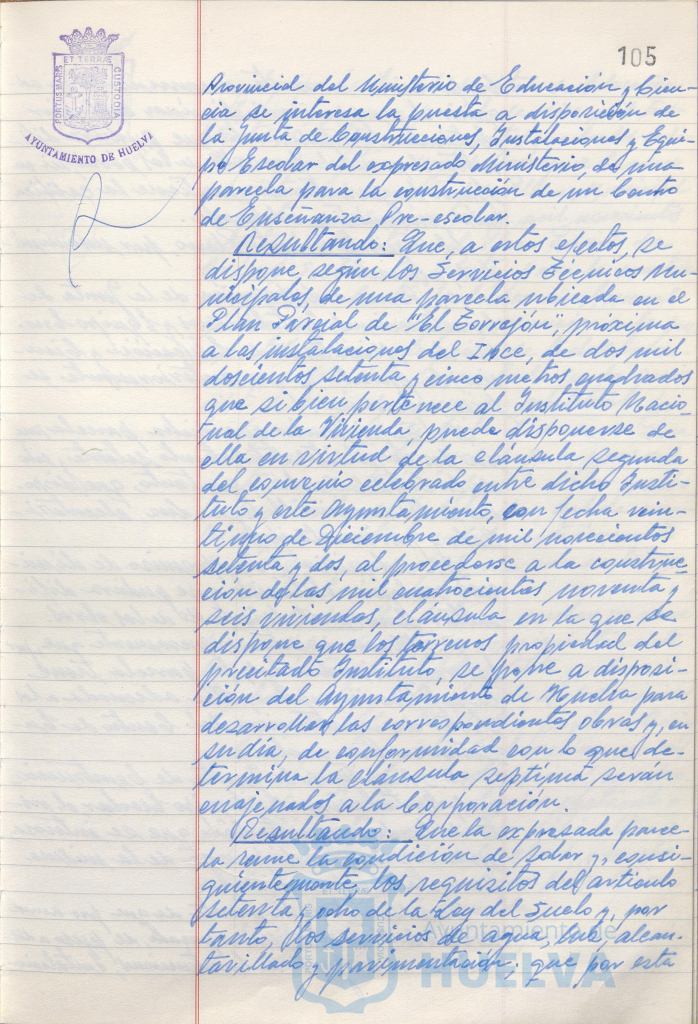 105
PORTUS MARIS ET TERRÆ CUSTODIA
AYUNTAMIENTO DE HUELVA
Provincial del Ministerio de Educación y Cien-
cia se interesa la puesta a disposición de
la Junta de Construcciones, Instalaciones y Equi-
po Escolar del expresado Ministerio, de una
parcela para la construcción de un Centro
de Enseñanza Pre-escolar.
Resultando: Que, a estos efectos, se
dispone según los Servicios Técnicos Mu-
nicipales, de una parcela ubicada en el
Plan Parcial de "El Torrejón", próxima
a las instalaciones del Ince, de dos mil
doscientos setenta y cinco metros cuadrados
que si bien pertenece al Instituto Nacio
nal de la Vivienda, puede disponerse de
ella en virtud de la cláusula segunda
del convenio celebrado entre dicho Insti-
tuto y este Ayuntamiento, con fecha vein-
tiuno de Diciembre de mil novecientos
setenta y dos, al procederse a la construc-
ción de las mil cuatrocientas noventa y
seis viviendas, cláusula en la que se
dispone que los terrenos propiedad del
precitado Instituto, se pone a disposi-
ción del Ayuntamiento de Huelva para
desarrollar las correspondientes obras y, en
su día, de conformidad con lo que de-
termina la cláusula septima serán
enajenados a la Corporación.
Resultando: Que la expresada parce-
la reune la condición de solar y, consi-
guientemente, los requisitos del artículo
setenta y ocho de la Ley del Suelo y, por
tanto, los servicios de agua, luz, alcan-
tarillado y pavimentación, que por esta
Ayuntamiento de
HUELVA